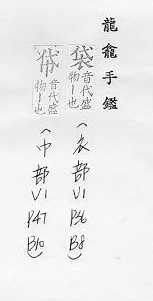 龍龕手鑑
袋音代盛物丨也
(衣部V1 P36 B8)
帒音代盛物丨也
(巾部V1 P47 B10)